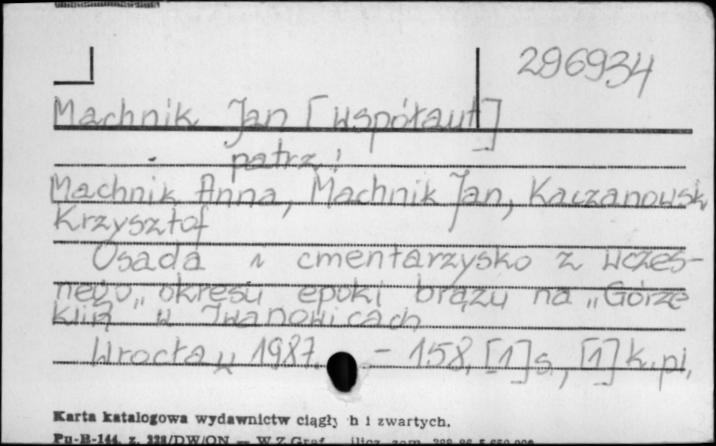 296934
Machnik Jan [współaut]
patrz:
Machnik Anna, Machnik Jan, Kaczanowsk
Krzysztof
Osada i cmentarzysko z wczes-
nego okresu epoki brązu na „Górze
Klin" w Iwanowicach
Wrocław 1987. - 158, [1] s., [1] k. pl.
Karta katalogowa wydawnictw ciągły h i zwartych.
Pu-B-144, z. 328/DW/ON — W.Z.Graf.